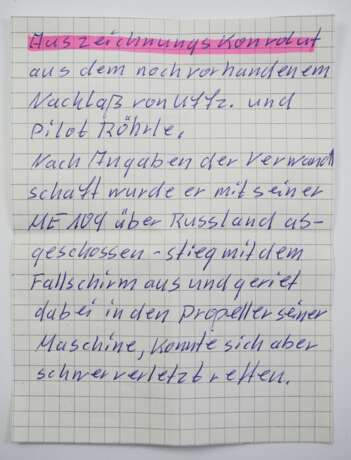 Auszeichnungs Konvolut
aus dem noch vorhandenem
Nachlaß von Uffz. und
Pilot Röhrle.
Nach Angaben der Verwand
schaft wurde er mit seiner
ME 109 über Russland ab-
geschossen - stieg mit dem
Fallschirm aus und geriet
dabei in den Propeller seiner
Maschine, konnte sich aber
schwer verletzt retten.